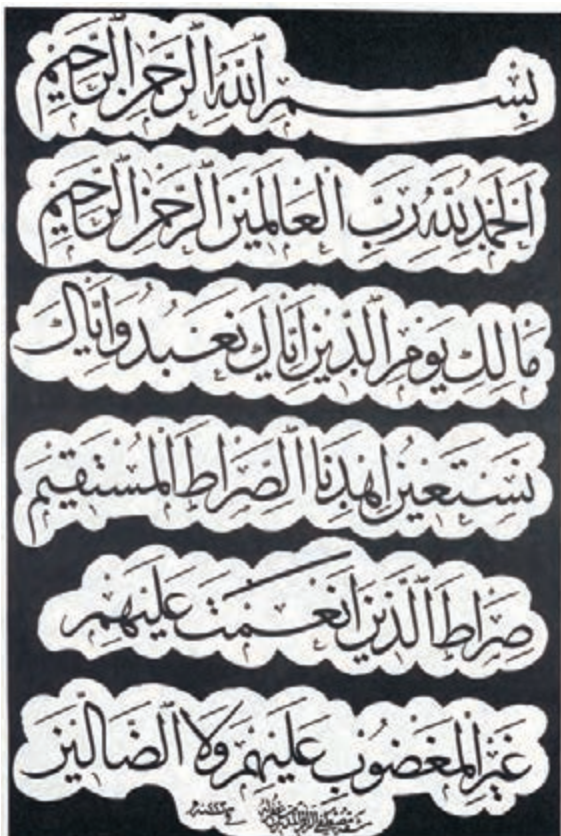 بِسْمِ اللهِ الرَّحْمٰنِ الرَّحِيمِ
اَلْحَمْدُ لِلّٰهِ رَبِّ الْعَالَمِينَ الرَّحْمٰنِ الرَّحِيمِ
مَالِكِ يَوْمِ الدِّينِ اِيَّاكَ نَعْبُدُ وَاِيَّاكَ
نَسْتَعِينُ اِهْدِنَا الصِّرَاطَ الْمُسْتَقِيمَ
صِرَاطَ الَّذِينَ اَنْعَمْتَ عَلَيْهِمْ
غَيْرِ الْمَغْضُوبِ عَلَيْهِمْ وَلَا الضَّالِّينَ